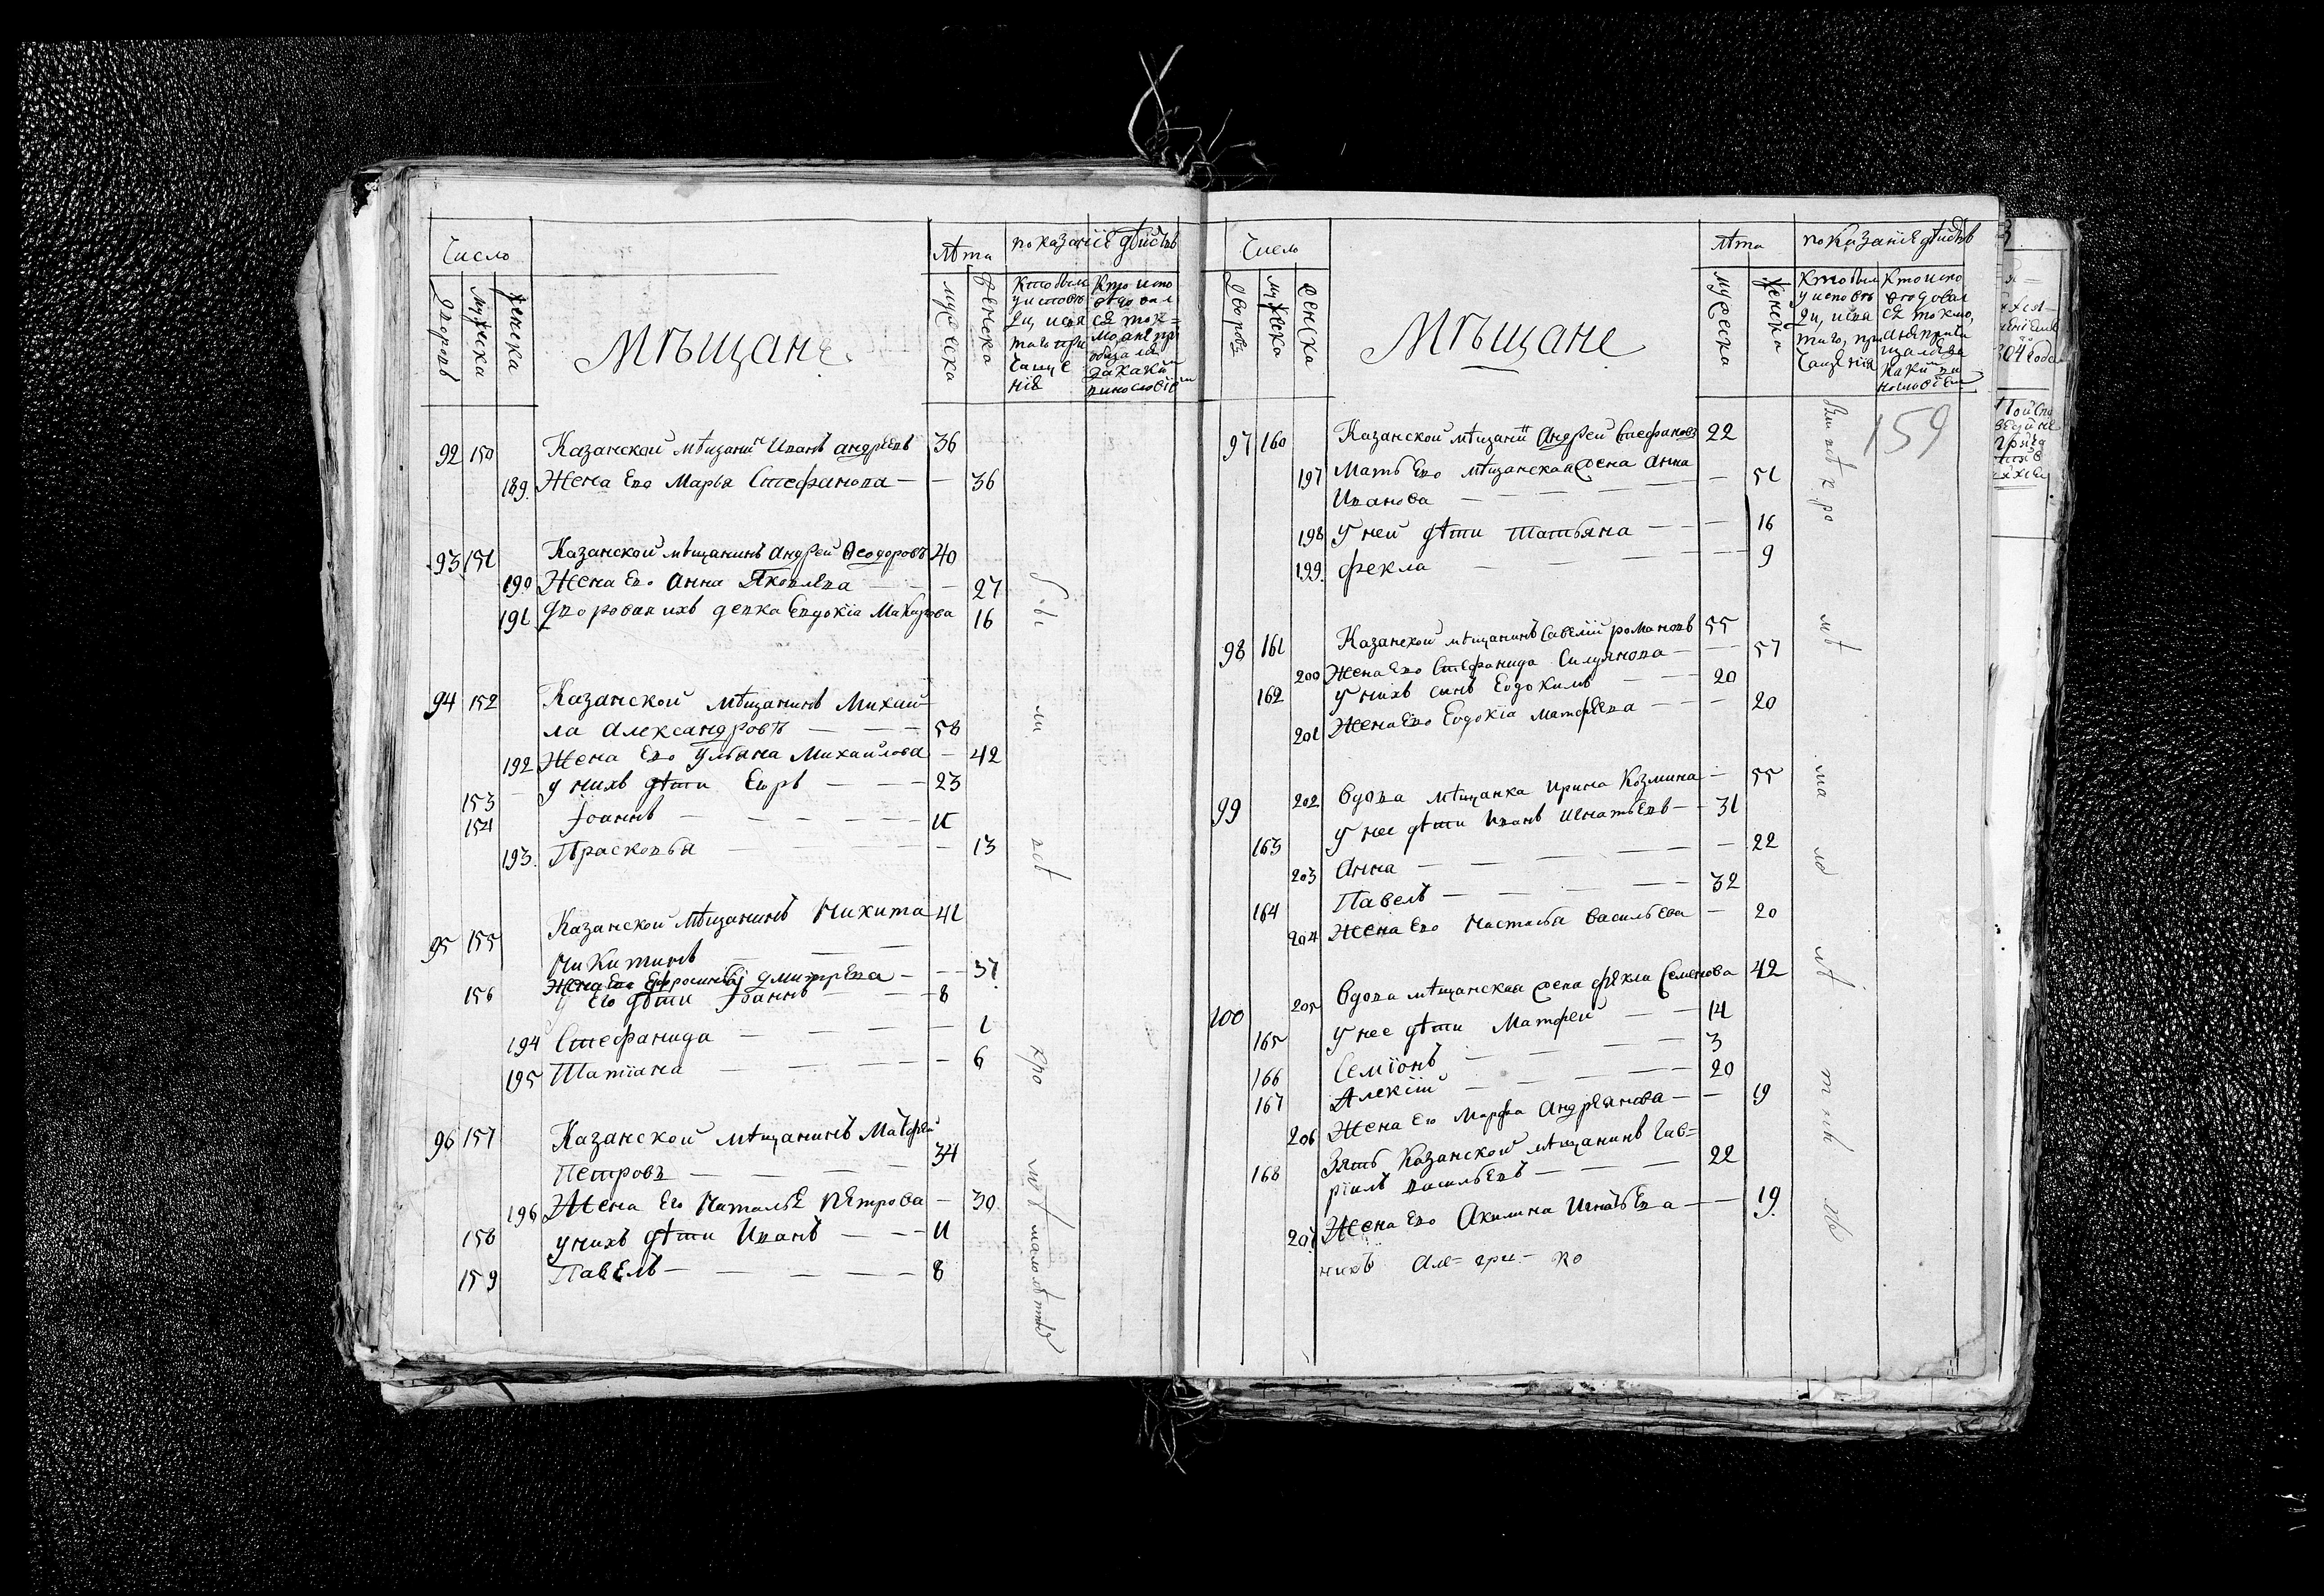 Число
лѣта
показанїе дѣйствъ
дворовъ
мужеска
женска
Мѣщане
мужеска
женска
92 150 Казанской мѣщанинъ Иванъ андреевъ 36
189. Жена Его Марья Стефанова — — 36
93 151 Казанской мѣщанинъ Андрей Ѳеодоровъ 40
190 Жена Его Анна Яковлева — — 27
191 Дворовая ихъ девка Евдокїа Макарова 16
94 152 Казанской мѣщанинъ Михай
ла Александровъ — — — 58
192 Жена Его Ульяна Михайлова — 42
153 у нихъ дѣти Егоръ — — — 23
154 Іоаннъ — — — — — 11
193. Прасковья — — — 13
95 155 Казанской мѣщанинъ Никита 41
Никитинъ — —
Жена Его Ефросинья Дмитрева — — 37
156 у Его дѣти Іоаннъ — — 8
194 Стефанида — — — — 1
195 Татїана — — — — 6
96 157 Казанской мѣщанинъ Матфей
Петровъ — — — — 34
196 Жена Его Наталья Петрова — 30
158 у нихъ дѣти Иванъ — — 11
159 Павелъ — — — — 8
были
всѣ
кро
мѣ малолѣтныхъ
Число
лѣта
показанїе дѣйствъ
дворовъ
мужеска
женска
Мѣщане
мужеска
женска
159
97 160 Казанской мѣщанинъ Андрей Стефановъ 22
197 Мать Его мѣщанская жена Анна
Иванова — — — — — 51
198 У ней дѣти Татьяна — — — 16
199. Фекла — — — — 9
98 161 Казанской мѣщанинъ Савелїй романовъ 55
200 Жена Его Стефанида Силуянова — — 57
162 у нихъ сынъ Евдокимъ — — 20
201 Жена Его Евдокїа Матфеева — — — 20
99 202 Вдова мѣщанка Ирина Козмина — 55
163 У нее дѣти Иванъ Игнатьевъ — — 31
203 Анна — — — — — 22
164 Павелъ — — — — 32
204 Жена Его Настасья Васильева — 20
100 205 Вдова мѣщанская жена фекла Семенова 42
165 У нее дѣти Матфей — — 14
166 Семїонъ — — — — 3
167 Алексїй — — — — 20
206 Жена Его Марфа Андреянова — — 19
168 Зять Казанской мѣщанинъ Гав=
рїилъ васильевъ — — — 22
207 Жена Его Акилина Игнатьева — — 19